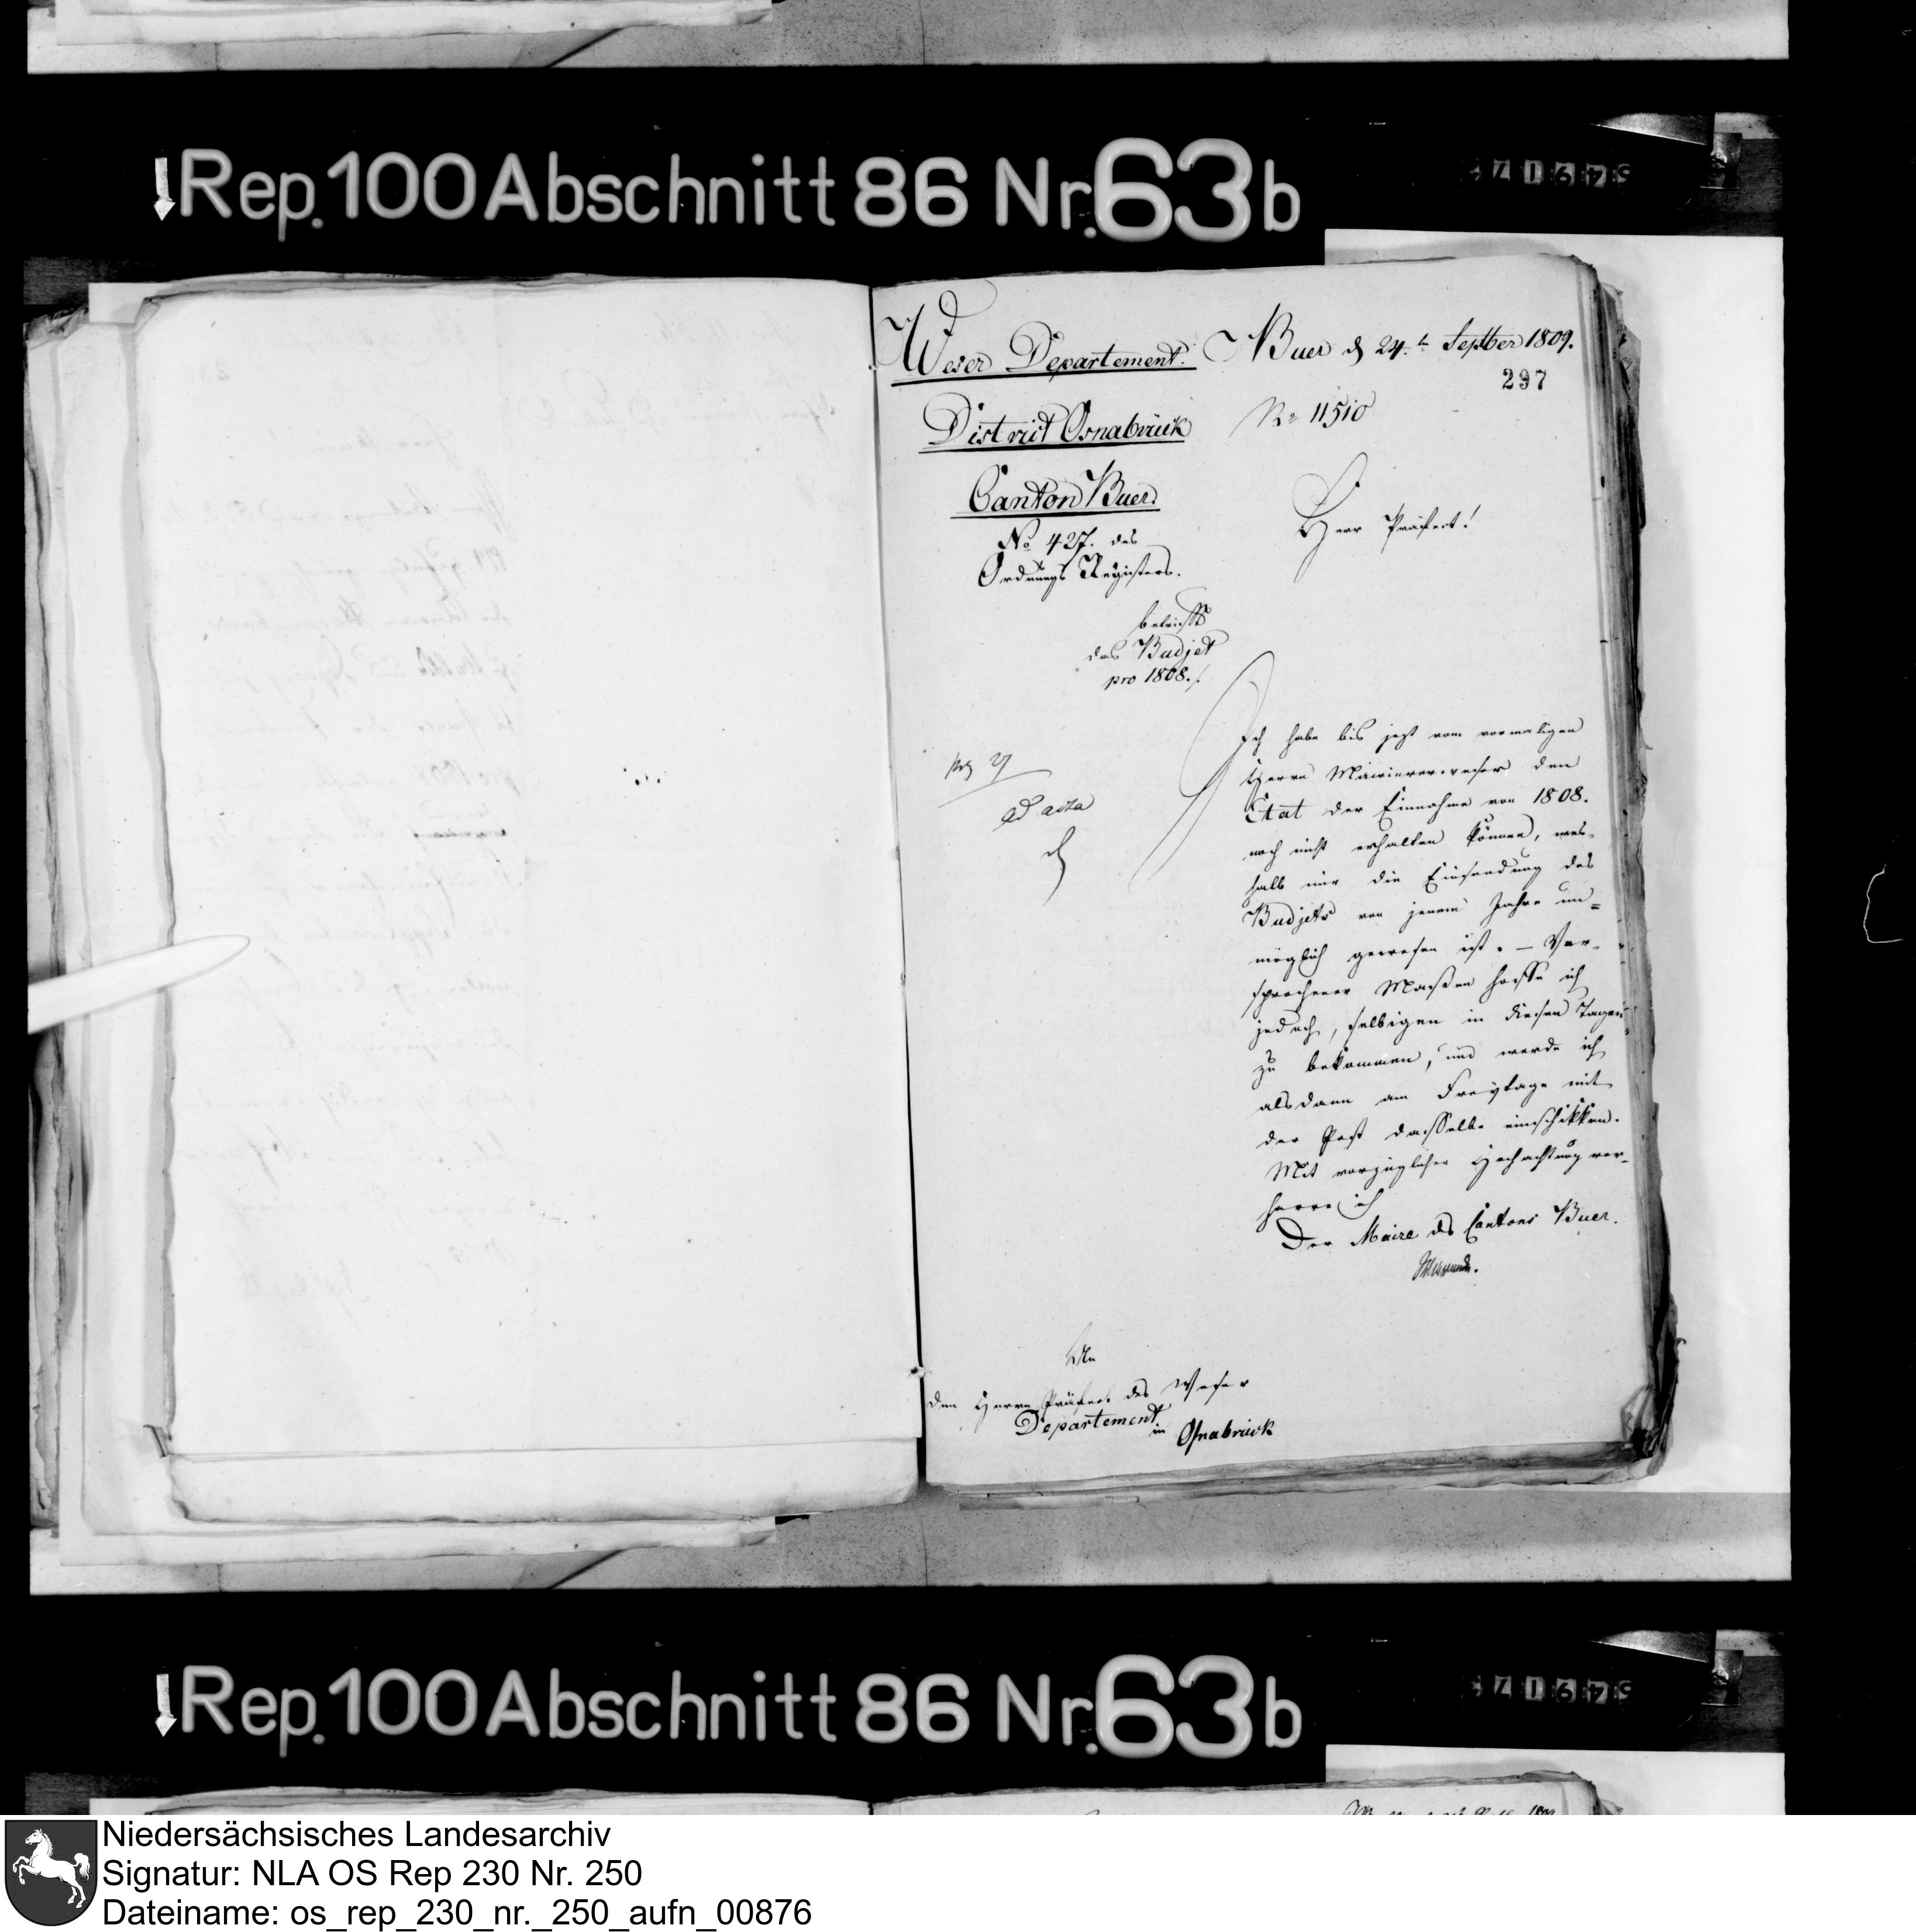 Rep. 100 Abschnitt 86 Nr. 63b
Weser Departement.
Buer d 24.t Septber 1809.
297
District Osnabrück
No 11510
Canton Buer.
No 427. des
Ordnungs Registers.
Herr Präfect!
betrifft
das Budjet
pro 1808./.
Ich habe bis jezt vom vormaligen
Herrn Mairieverweser den
Etat der Einnahme von 1808.
noch nicht erhalten können, wes-
halb mir die Einsendung des
Budjets von jenem Jahre un=
möglich gewesen ist. – Ver-
sprochener Maßen hoffe ich
jedoch, selbigen in diesen Tagen
zu bekommen, und werde ich
alsdann am Freytage mit
der Post dasselbe einschikken.
Mit vorzüglicher Hochachtung ver-
harre ich
Der Maire des Cantons Buer.
27
ad acta
An
den Herrn Präfect des Weser
Departement
in Osnabrück
Rep. 100 Abschnitt 86 Nr. 63b
Niedersächsisches Landesarchiv
Signatur: NLA OS Rep 230 Nr. 250
Dateiname: os_rep_230_nr._250_aufn_00876